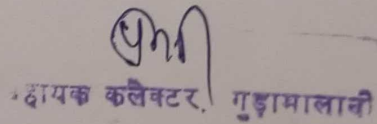 हायक कलैक्टर, गुड़ामालानी